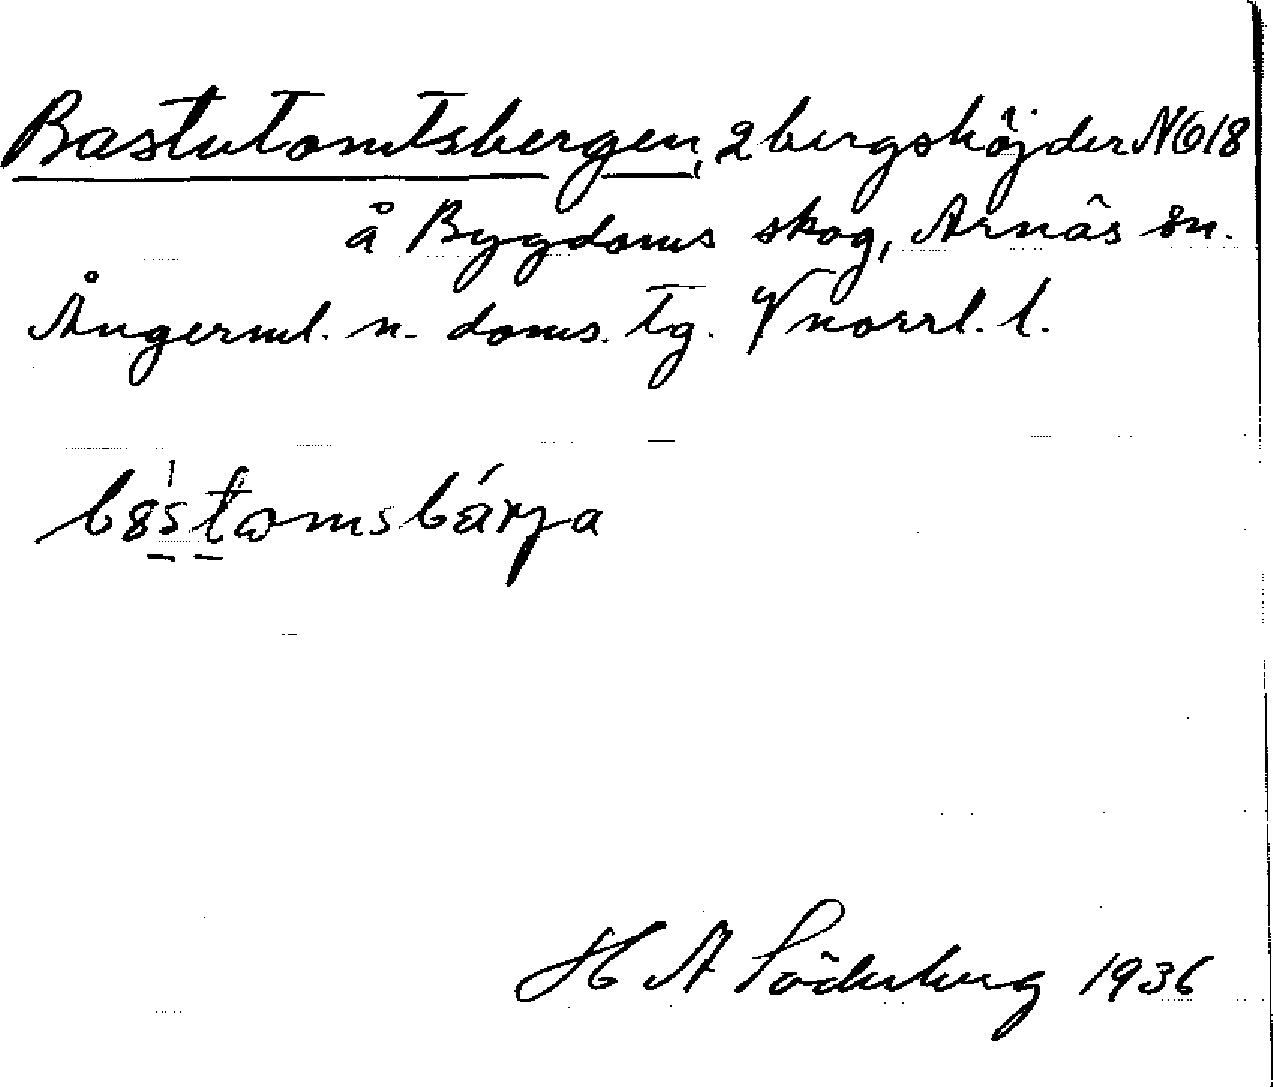 Bastutomtsbergen, 2 bergshöjder NO 18
å Bygdoms skog, Arnäs sn.
Ångerml. n. doms. tg. Vnorrl. l.
H A Söderberg 1936